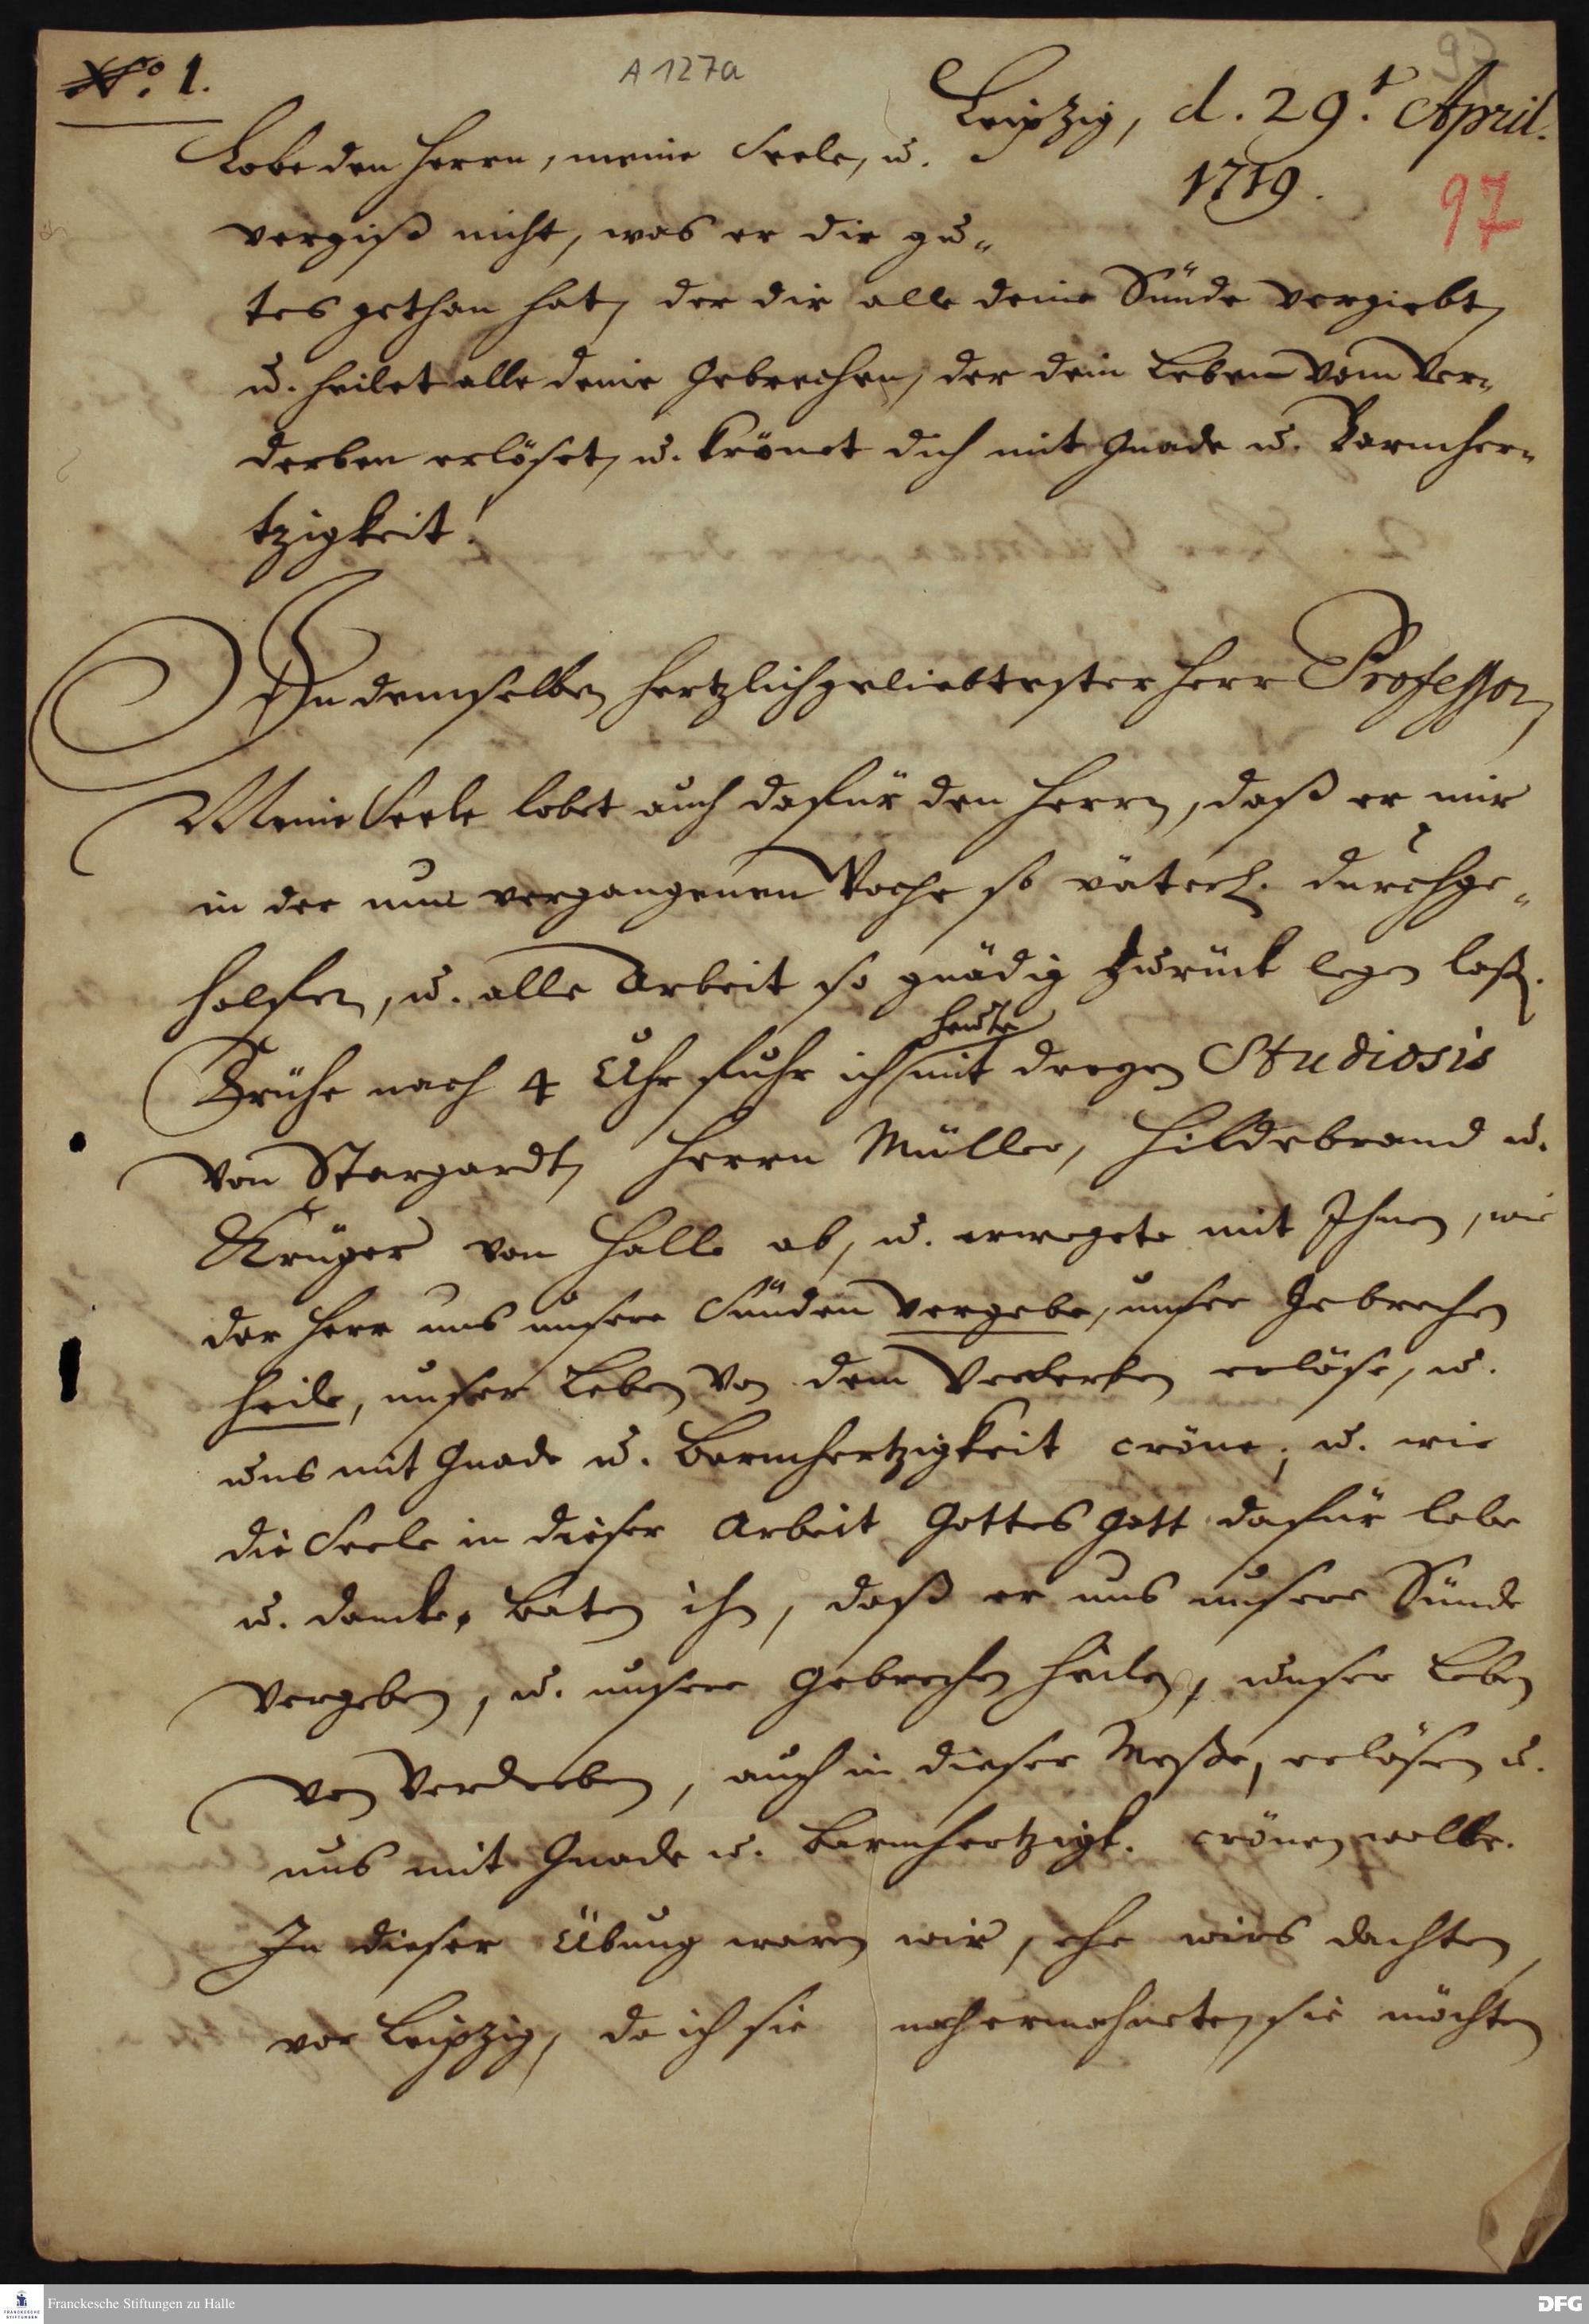 No. 1.
A 127a
Leipzig, d. 29.t April.
1719.
97
Lobe den Herrn, meine Seele, u.
vergiß nicht, was er dir gu-
tes gethan hat, der dir alle deine Sünde vergiebt,
u. heilet alle deine Gebrechen, der dein Leben vom Ver-
derben erlöset, u. krönet dich mit Gnade u. Barmher-
tzigkeit!
In demselben hertzlichgeliebtester Herr Professor,
Meine Seele lobet auch dafür den Herrn, daß er mir
in der nun vergangenen Woche so väterl. durchge-
holfen, u. alle Arbeit so gnädig zurück legen laß.
heute
Frühe nach 4 Uhr fuhr ich mit dreyen Studiosis
von Stargardt, Herrn Müller, Hildebrand u.
Krüger von Halle ab, u. erwegete mit Ihnen, wie
der Herr uns unsere Sünden vergebe, unser Gebrechen
heile, unser Leben von dem Verderben erlöse, u.
uns mit Gnade u. Barmhertzigkeit cröne; u. wie
die Seele in dieser Arbeit Gottes Gott dafür lobe
u. dancke, baten ihn, daß er uns unsere Sünde
vergeben, u. unsere Gebrechen heilen, unser Leben
von Verderben, auch in dieser Meße, erlösen u.
uns mit Gnade u. Barmhertzigk. crönen wolle.
In dieser Übung waren wir, ehe wirs dachten,
vor Leipzig, da ich sie noch ermahnete, sie möchten
Franckesche Stiftungen zu Halle
FRANCKESCHE STIFTUNGEN
DFG